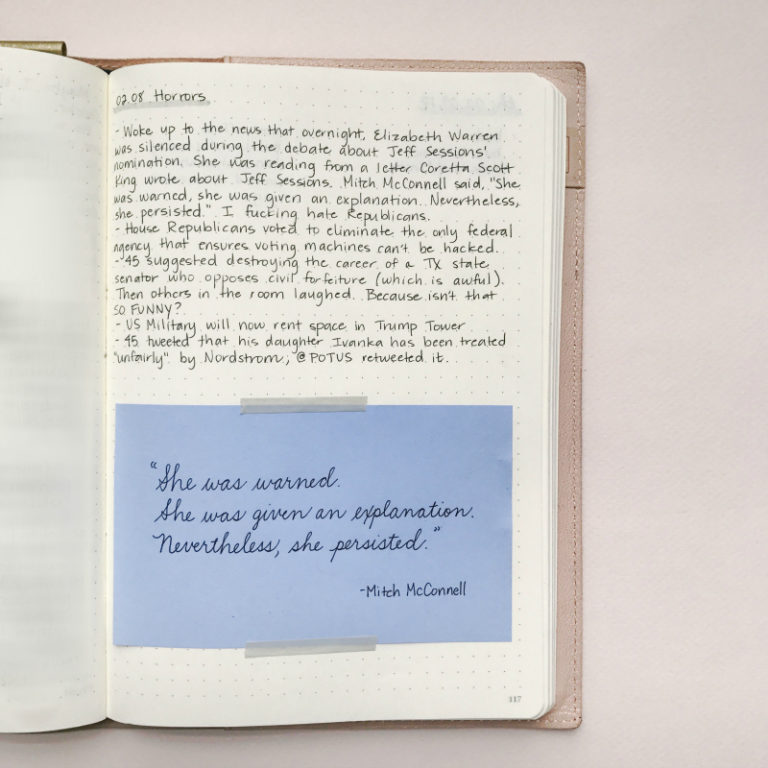 02.08 Horrors
- Woke up to the news that overnight, Elizabeth Warren
was silenced during the debate about Jeff Sessions'
nomination. She was reading from a letter Coretta Scott
King wrote about Jeff Sessions. Mitch McConnell said, "She
was warned, she was given an explanation. Nevertheless,
she persisted." I fucking hate Republicans.
- House Republicans voted to eliminate the only federal
agency that ensures voting machines can't be hacked.
- 45 suggested destroying the career of a TX state
senator who opposes civil forfeiture (which is awful).
Then others in the room laughed. Because isn't that
SO FUNNY?
- US Military will now rent space in Trump Tower
- 45 tweeted that his daughter Ivanka has been treated
"unfairly" by Nordstrom; @POTUS retweeted it.
"She was warned.
She was given an explanation.
Nevertheless, she persisted."
-Mitch McConnell
117